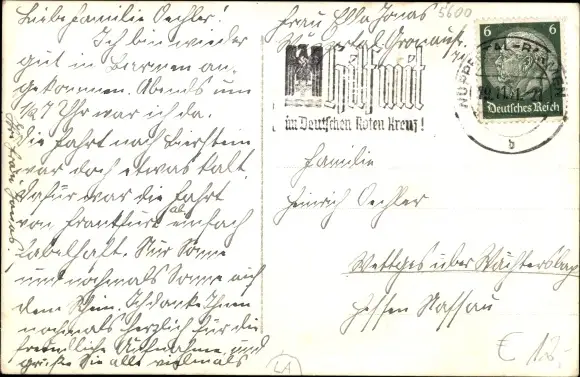 Liebe Familie Oechler!
Ich bin wieder
gut in Barmen an
gekommen. Abends um
1/2 7 Uhr war ich da.
Die Fahrt nach
war doch etwas kalt.
Dafür war die Fahrt
von Frankfurt ab einfach
fabelhaft. Nur Sonne
und nochmals Sonne auf
dem Rhein. Ich danke Ihnen
nochmals herzlich für die
freundliche Aufnahme und
grüße Sie alle vielmals
Ihre Frau Jonas!
Frau Ella Jonas
5600
Wuppertal
Hilf mit
im Deutschen Roten Kreuz!
WUPPERTAL-BARMEN
b
6 6
Deutsches Reich
Familie
Heinrich Oechler
Wettges über Wächtersbach
Hessen Nassau
€ 12,-
LA